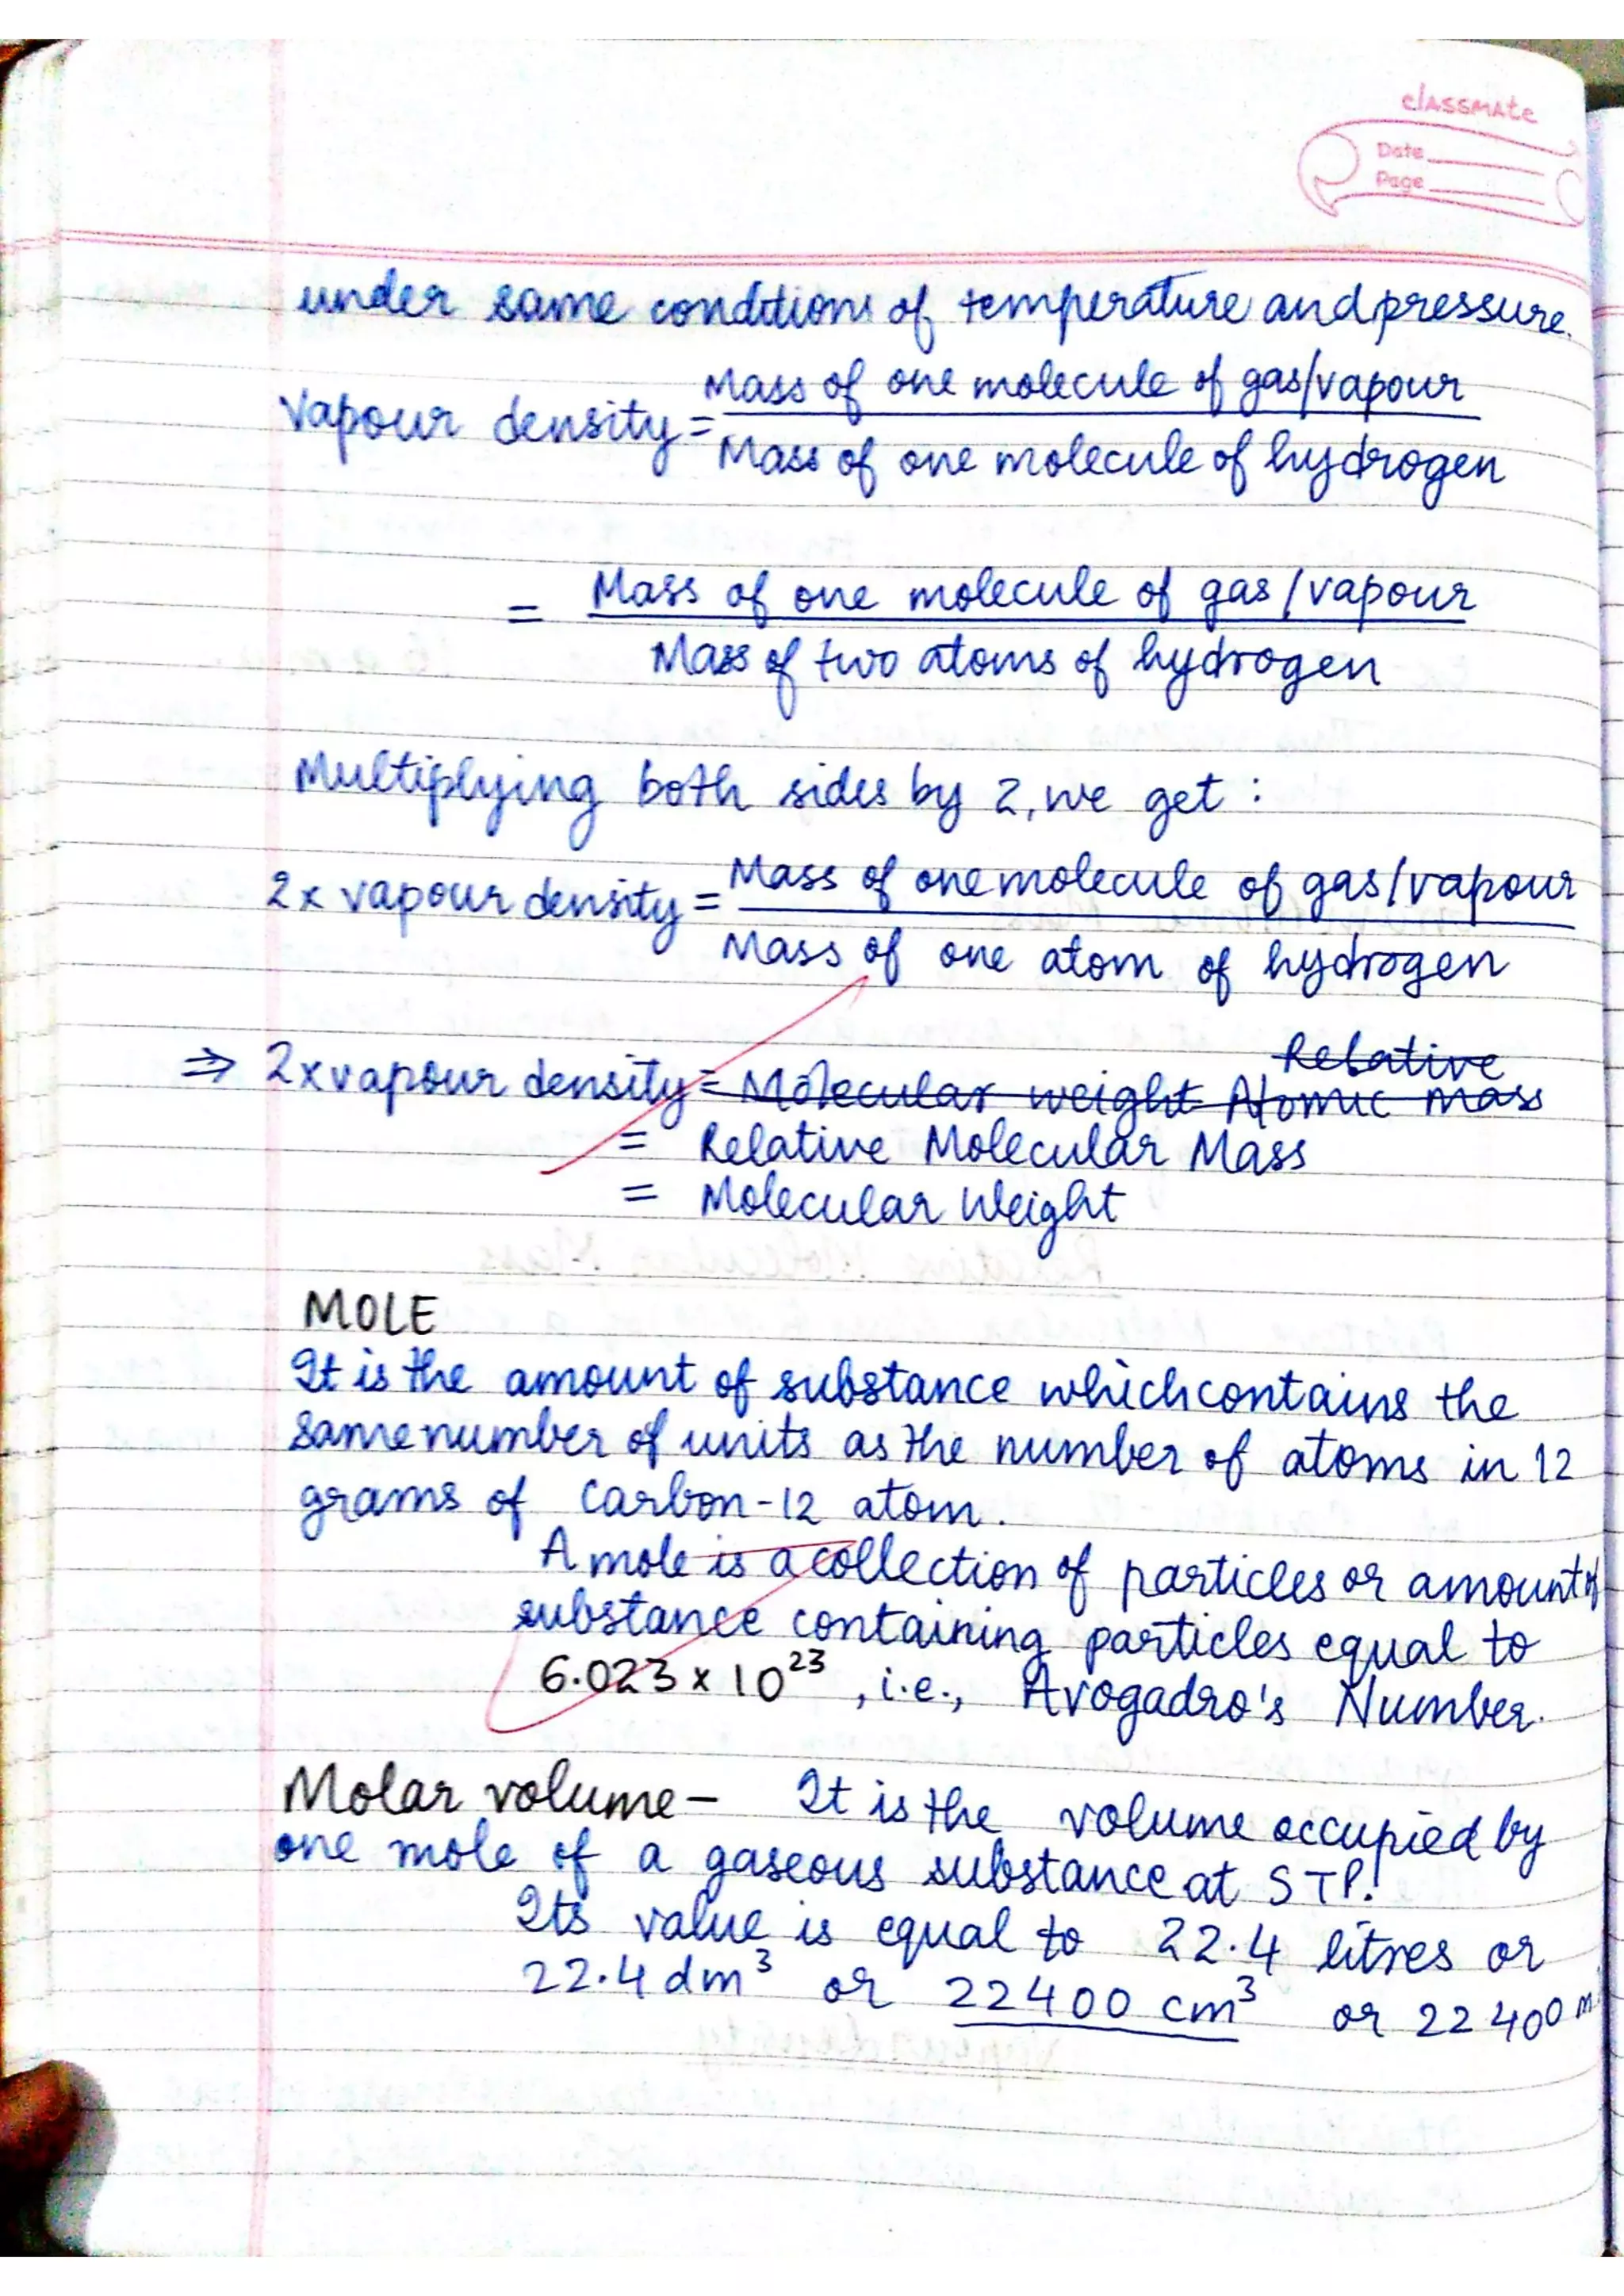 classmate
Date
Page
under same conditions of temperature and pressure.
Vapour density = Mass of one molecule of gas/vapour
Mass of one molecule of hydrogen
= Mass of one molecule of gas/vapour
Mass of two atoms of hydrogen
Multiplying both sides by 2, we get :
2 x vapour density = Mass of one molecule of gas/vapour
Mass of one atom of hydrogen
Relative
⇒ 2 x vapour density = Molecular weight Atomic mass
= Relative Molecular Mass
= Molecular Weight
MOLE
It is the amount of substance which contains the
same number of units as the number of atoms in 12
grams of Carbon-12 atom.
A mole is a collection of particles or amount of
substance containing particles equal to
6.023 x 10²³, i.e., Avogadro's Number.
Molar volume - It is the volume occupied by
one mole of a gaseous substance at STP.
Its value is equal to 22.4 litres or
22.4 dm³ or 22400 cm³ or 22400 m